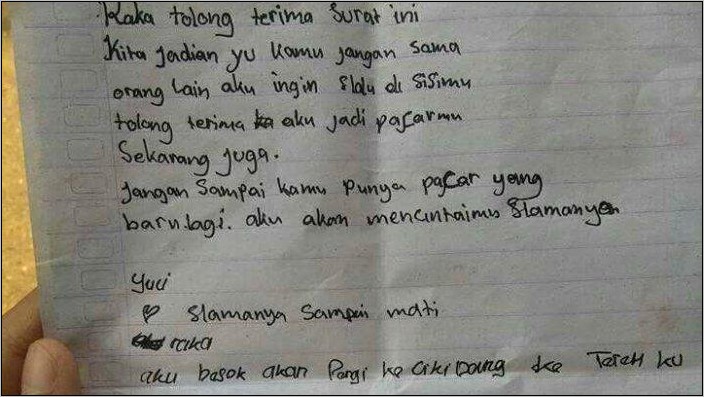 Raka tolong terima surat ini
Kita jadian yu kamu jangan sama
orang lain aku ingin slalu di sisimu
tolong terima aku jadi pacarmu
Sekarang juga.
Jangan Sampai kamu punya pacar yang
baru.lagi. aku akan mencintaimu slamanya
Yuci
♡ Slamanya sampai mati
raka
aku besok akan Pergi ke cikidang ke Teteh ku